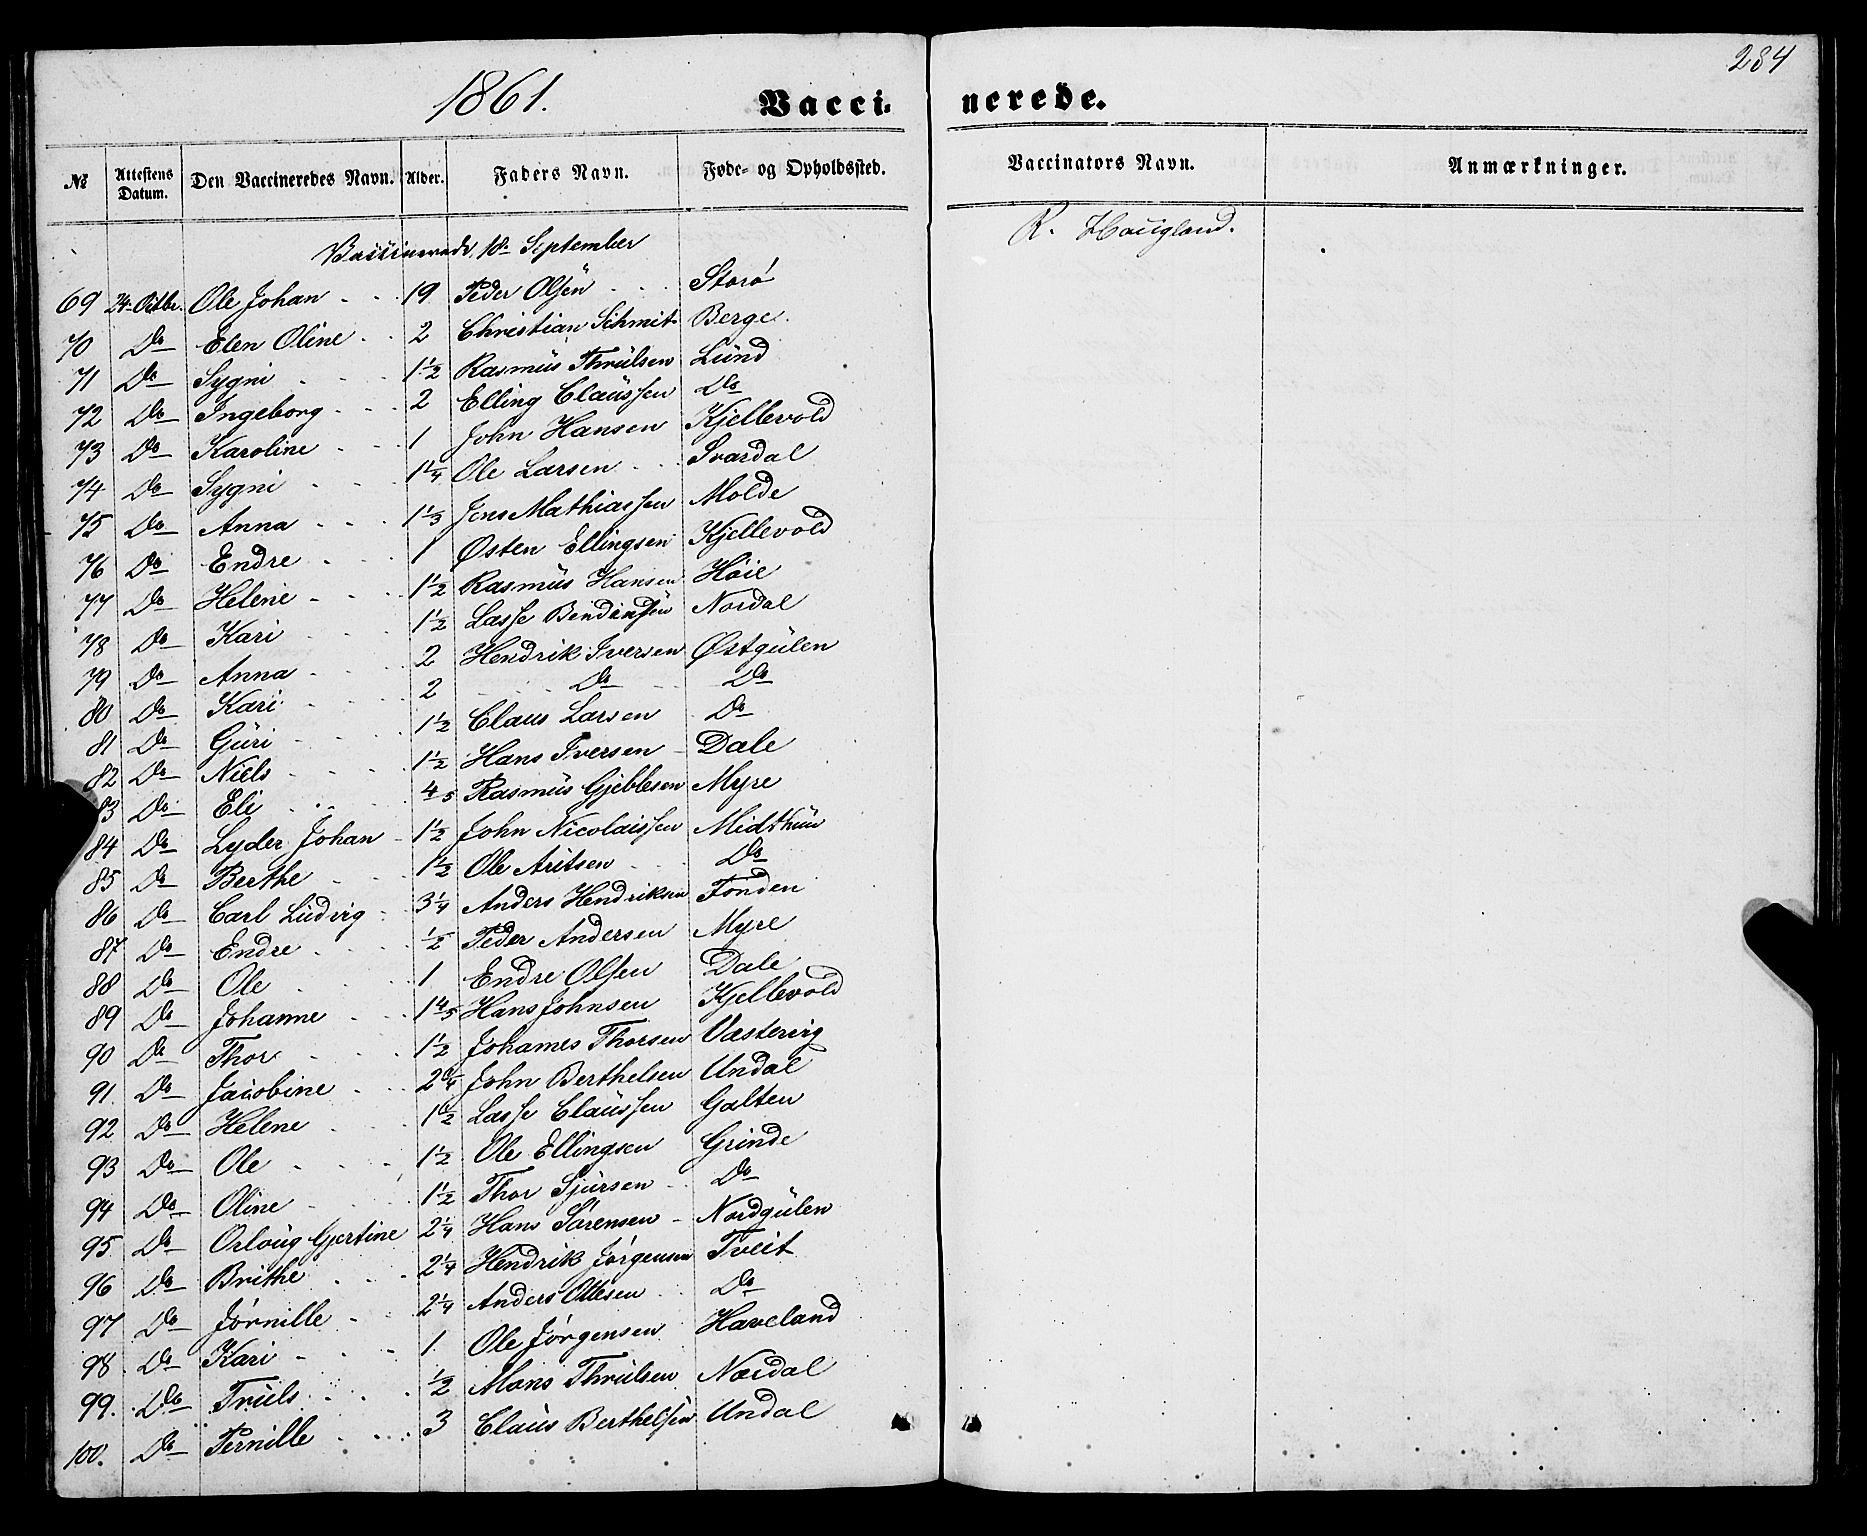 284
1861. Vacci- nerede.
№ Attestens Datum. Den Vaccineredes Navn. Alder. Faders Navn. Føde- og Opholdssted. Vaccinators Navn. Anmærkninger.
18de September R. Haugland.
69 24 Octbr. Ole Johan 19 Peder Olsen Storø
70 Do Elen Oline 2 Christian Schmit Berge
71 Do Sygni 1 1/2 Rasmus Thrulsen Lund
72 Do Ingeborg 2 Elling Claussen Do
73 Do Karoline 1 John Hansen Kjellevold
74 Do Sygni 1 1/4 Ole Larsen Svardal
75 Do Anna 1 1/3 Jens Mathiassen Molde
76 Do Endre 1 Østen Ellingsen Kjellevold
77 Do Helene 1 1/2 Rasmus Hansen Høie
78 Do Kari 1 1/2 Lasse Nordal
79 Do Anna 2 Hendrik Iversen Østgulen
80 Do Kari 2 Do Do
81 Do Guri 1 1/2 Claus Larsen Do
82 Do Niels 1 1/2 Hans Iversen Dale
83 Do Eli 4/5 Rasmus Gjeblesen Myre
84 Do Lyder Johan 1 1/2 John Nicolaissen Midthun
85 Do Berthe 1 1/2 Ole Do
86 Do Carl Ludvig 3 1/4 Anders Hendriksen Fonden
87 Do Endre 1/2 Peder Andersen Myre
88 Do Ole 1 Endre Olsen Dale
89 Do Johanne 1 4/5 Hans Johnsen Kjellevold
90 Do Thor 1 1/2 Johannes Thorsen
91. Do Jacobine John Berthelsen Undal
92 Do Helene Lasse Claussen Galten
93 Do Ole 1 1/2 Ole Ellingsen Grinde
94 Do Oline 1 1/2 Thor Sjursen Do
95 Do Orloug Gjertine 2 1/4 Hans Sørensen Nordgulen
96 Do Brithe 2 1/4 Hendrik Jørgensen Tveit
97 Do Jørnille 2 1/4 Anders Ottesen Do
98 Do Kari 1. Ole Jørgensen Haveland
99. Do Truels 1/2 Mons Thrulsen Nordal
100. Do Pernille 3 Claus Berthelsen Undal